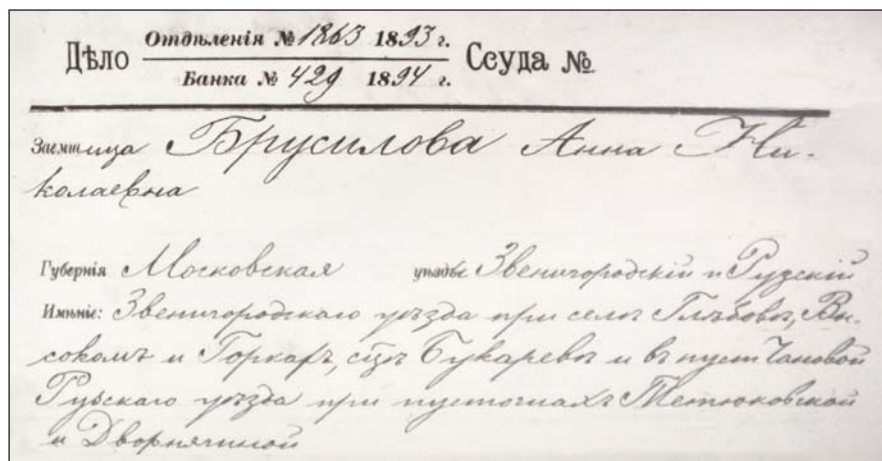 Дѣло Отдѣленія № 1263 1893 г. Ссуда №
Банка № 429 1894 г.
Заемщица Брусилова Анна Ни-
колаевна
Губернія Московская уѣзды Звенигородскій и Рузскій
Имѣніе: Звенигородскаго уѣзда при селѣ Глѣбовѣ, Вы-
сокомъ и Горкахъ, сцѣ Букаревѣ и въ пуст Чановой
Рузскаго уѣзда при пустошахъ Тетюковской
и Дворнячиной